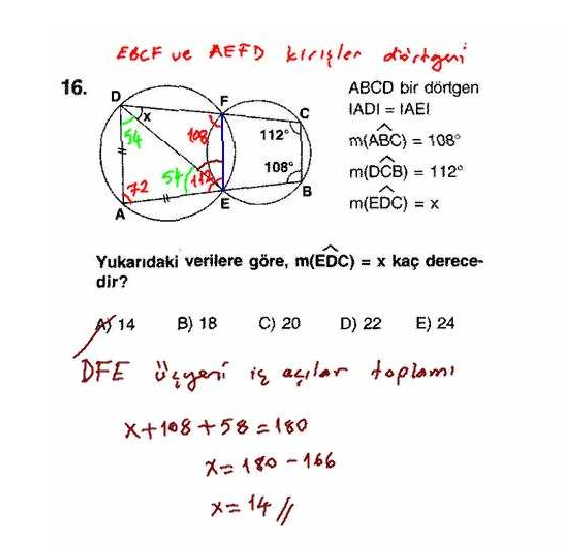 EBCF ve AEFD kirişler dörtgeni
16.
ABCD bir dörtgen
|AD| = |AE|
m(ABC) = 108°
m(DCB) = 112°
m(EDC) = x
D
F
C
x
54
108
112°
108°
54
72
A
E
B
Yukarıdaki verilere göre, m(EDC) = x kaç derece-
dir?
A) 14 B) 18 C) 20 D) 22 E) 24
DFE üçgeni iç açılar toplamı
x+108+58=180
x=180-166
x=14//